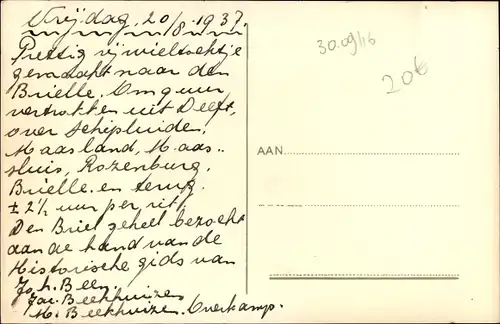 Vrijdag, 20/8. 1937.
Prettig rijwieltochtje
gemaakt naar den
Brielle. Om 9 uur
vertrokken uit Delft,
over Schipluiden.
Maasland, Maas..
sluis, Rozenburg.
Brielle. en terug.
± 2½ uur per rit.
Den Briel geheel bezocht
aan de hand van de
Historische gids van
Joh. Been.
Jac. Beekhuizen
M. Beekhuizen. Overkamp.
30.09/16
20€
AAN